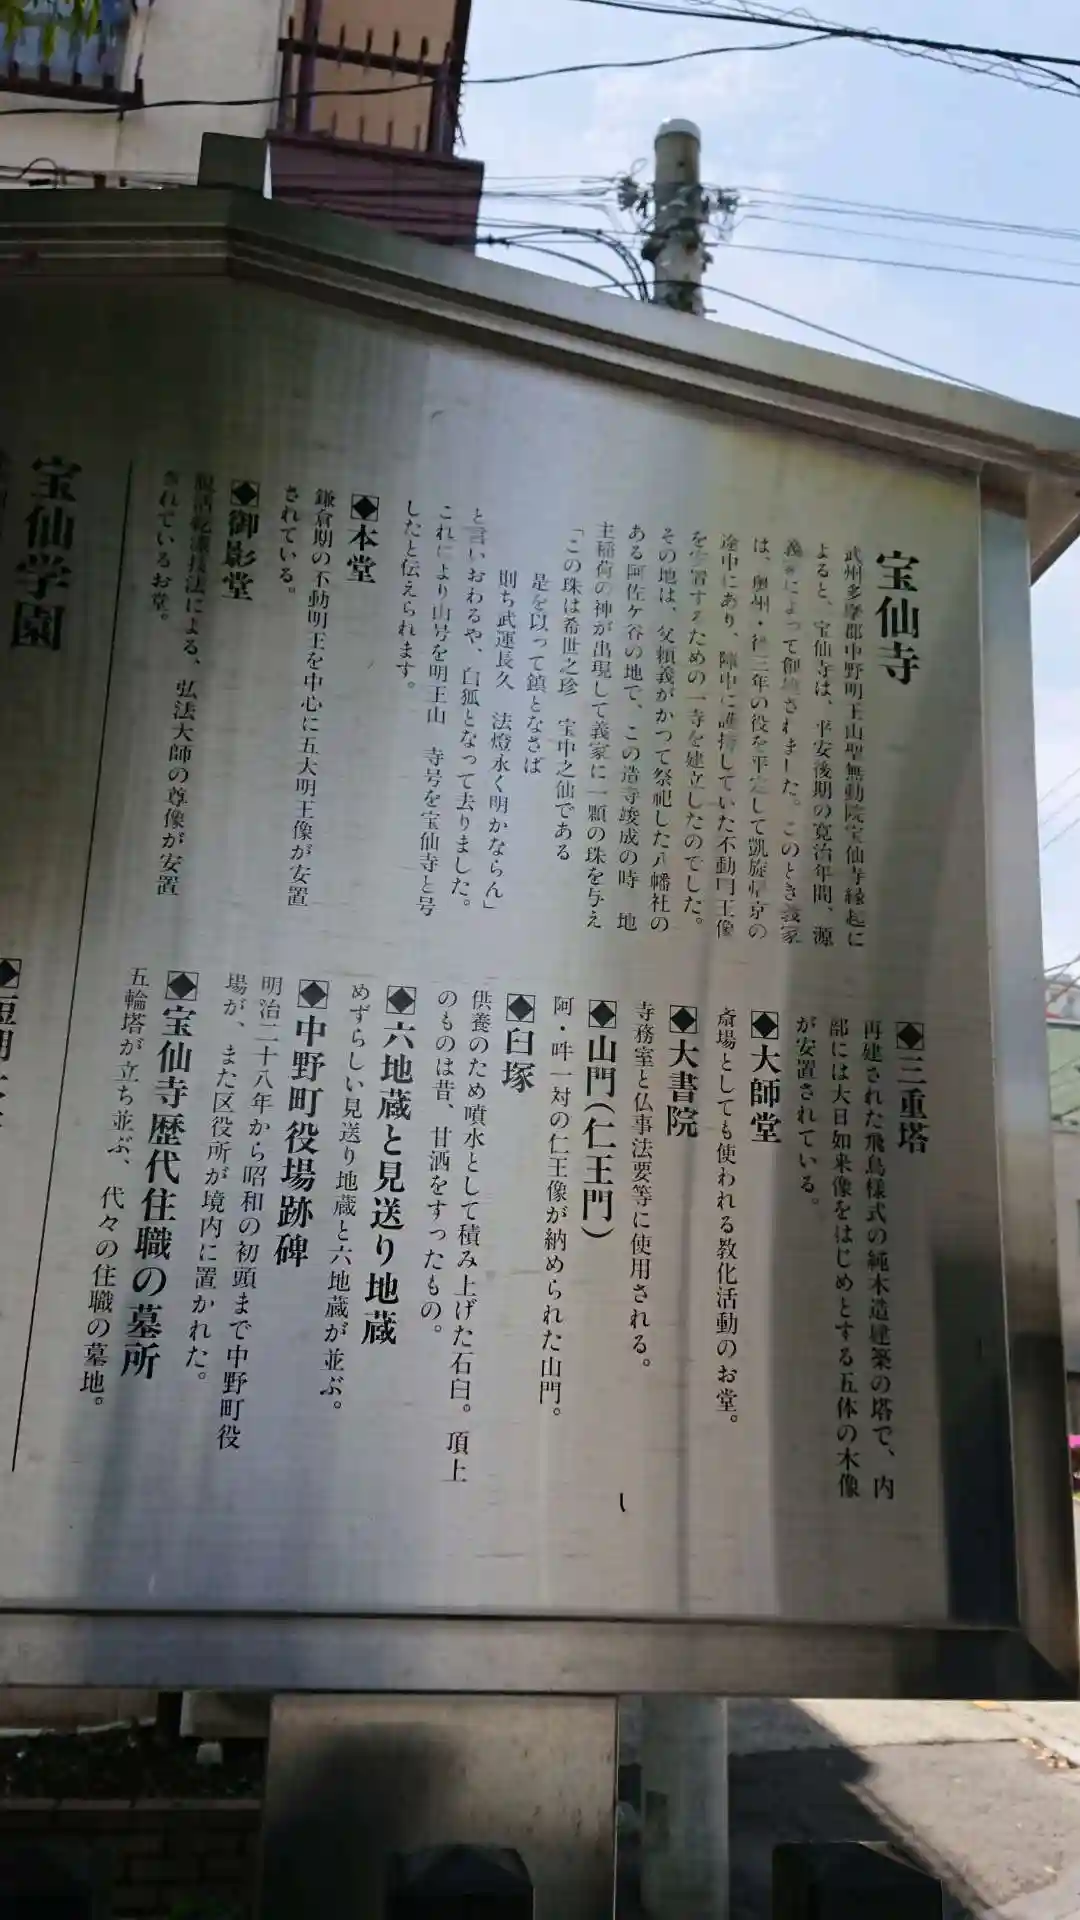 宝仙寺
武州多摩郡中野明王山聖無動院宝仙寺縁起に
よると、宝仙寺は、平安後期の寛治年間、源
義家によって創建されました。このとき義家
は、奥州・後三年の役を平定して凱旋帰京の
途中にあり、陣中に護持していた不動明王像
を安置するための一寺を建立したのでした。
その地は、父頼義がかつて祭祀した八幡社の
ある阿佐ケ谷の地で、この造寺竣成の時 地
主稲荷の神が出現して義家に一顆の珠を与え
「この珠は希世之珍 宝中之仙である
是を以って鎮となさば
則ち武運長久 法燈永く明かならん」
と言いおわるや、白狐となって去りました。
これにより山号を明王山 寺号を宝仙寺と号
したと伝えられます。
◆本堂
鎌倉期の不動明王を中心に五大明王像が安置
されている。
◆御影堂
脱活乾漆技法による、弘法大師の尊像が安置
されているお堂。
◆三重塔
再建された飛鳥様式の純木造建築の塔で、内
部には大日如来像をはじめとする五体の木像
が安置されている。
◆大師堂
斎場としても使われる教化活動のお堂。
◆大書院
寺務室と仏事法要等に使用される。
◆山門(仁王門)
阿・吽一対の仁王像が納められた山門。
◆臼塚
供養のため噴水として積み上げた石臼。頂上
のものは昔、甘酒をすったもの。
◆六地蔵と見送り地蔵
めずらしい見送り地蔵と六地蔵が並ぶ。
◆中野町役場跡碑
明治二十八年から昭和の初頭まで中野町役
場が、また区役所が境内に置かれた。
◆宝仙寺歴代住職の墓所
五輪塔が立ち並ぶ、代々の住職の墓地。
宝仙学園